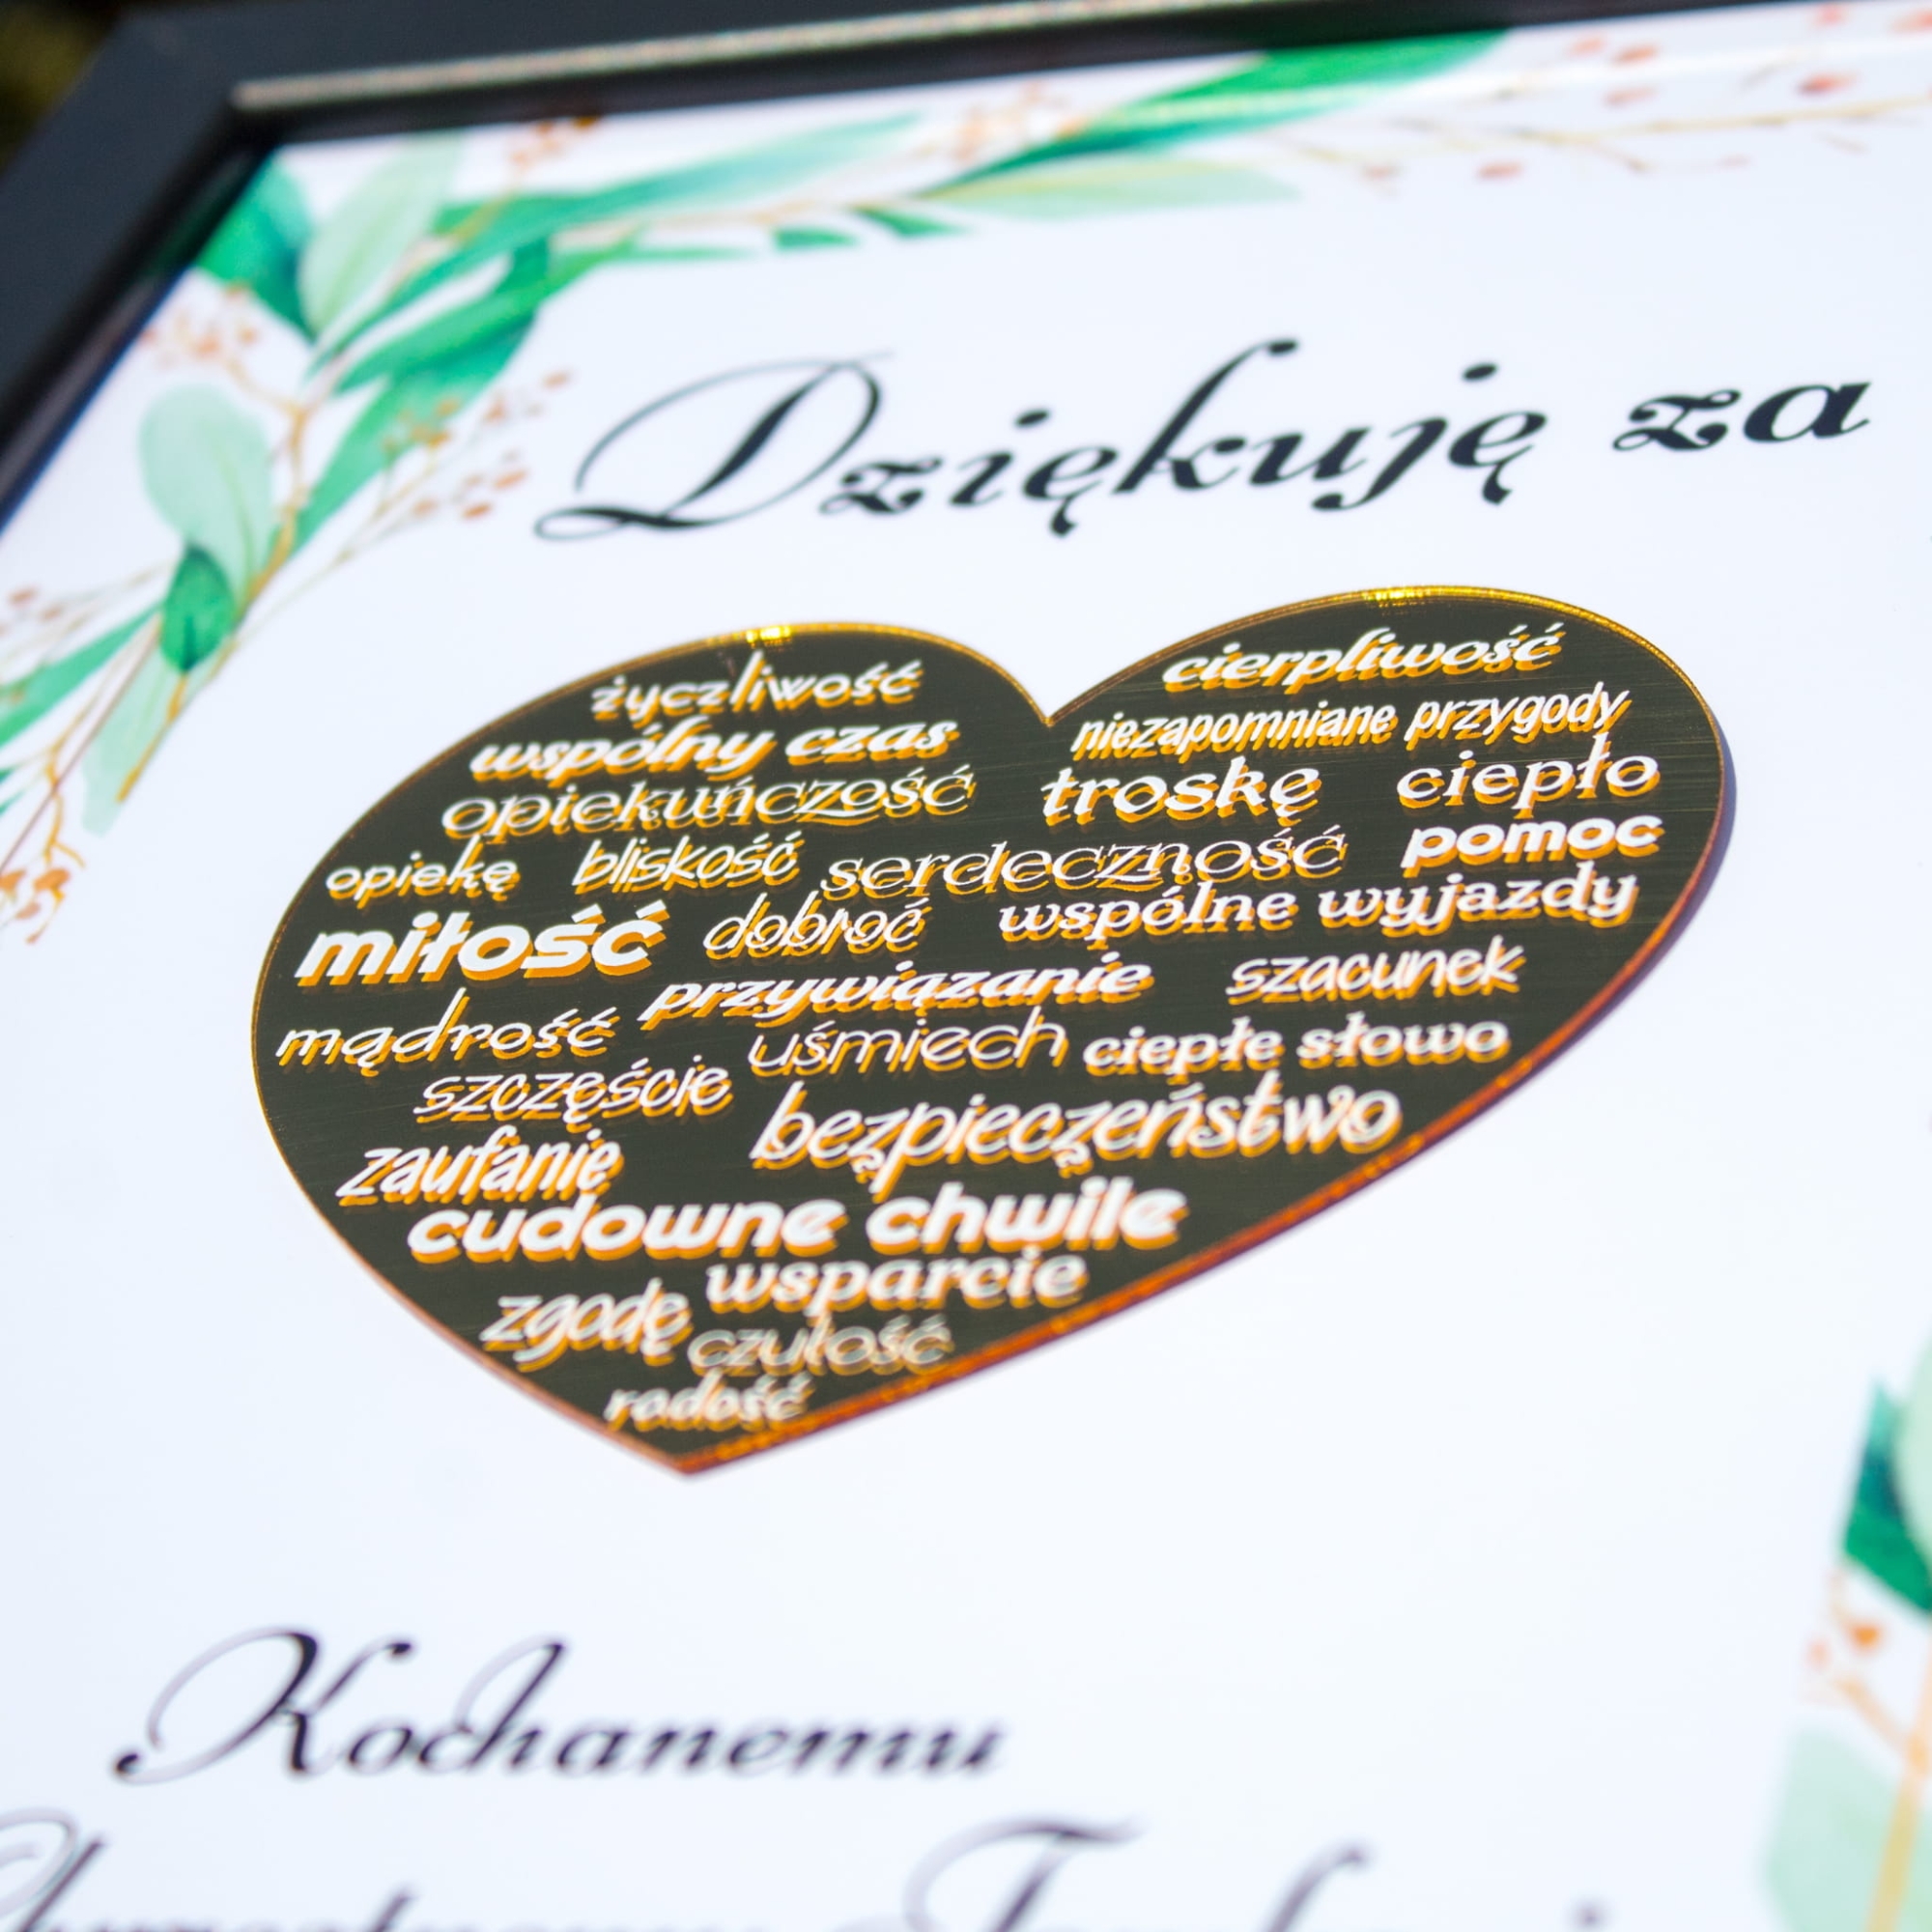 Dziękuję za
życzliwość cierpliwość
wspólny czas niezapomniane przygody
opiekuńczość troskę ciepło
opiekę bliskość serdeczność pomoc
miłość dobroć wspólne wyjazdy
przywiązanie szacunek
mądrość uśmiech ciepłe słowo
szczęście bezpieczeństwo
zaufanie
cudowne chwile
wsparcie
zgodę czułość
radość
Kochanemu